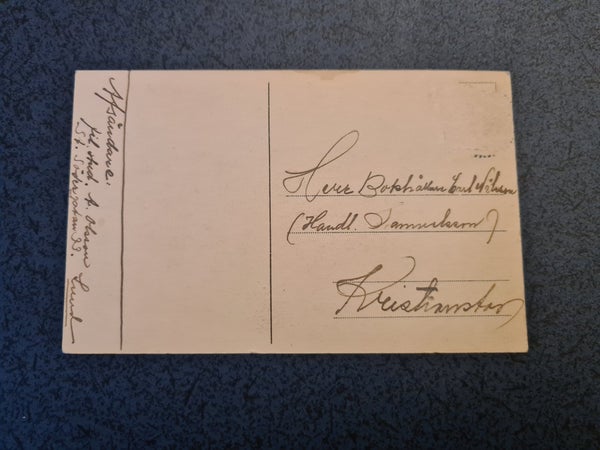 Afsändare.
fil. stud. A. Olsson
St. Södergatan 33. Lund
Herr Bokhållare Carl Nilsson
(Handl. Samuelsson)
Kristianstad